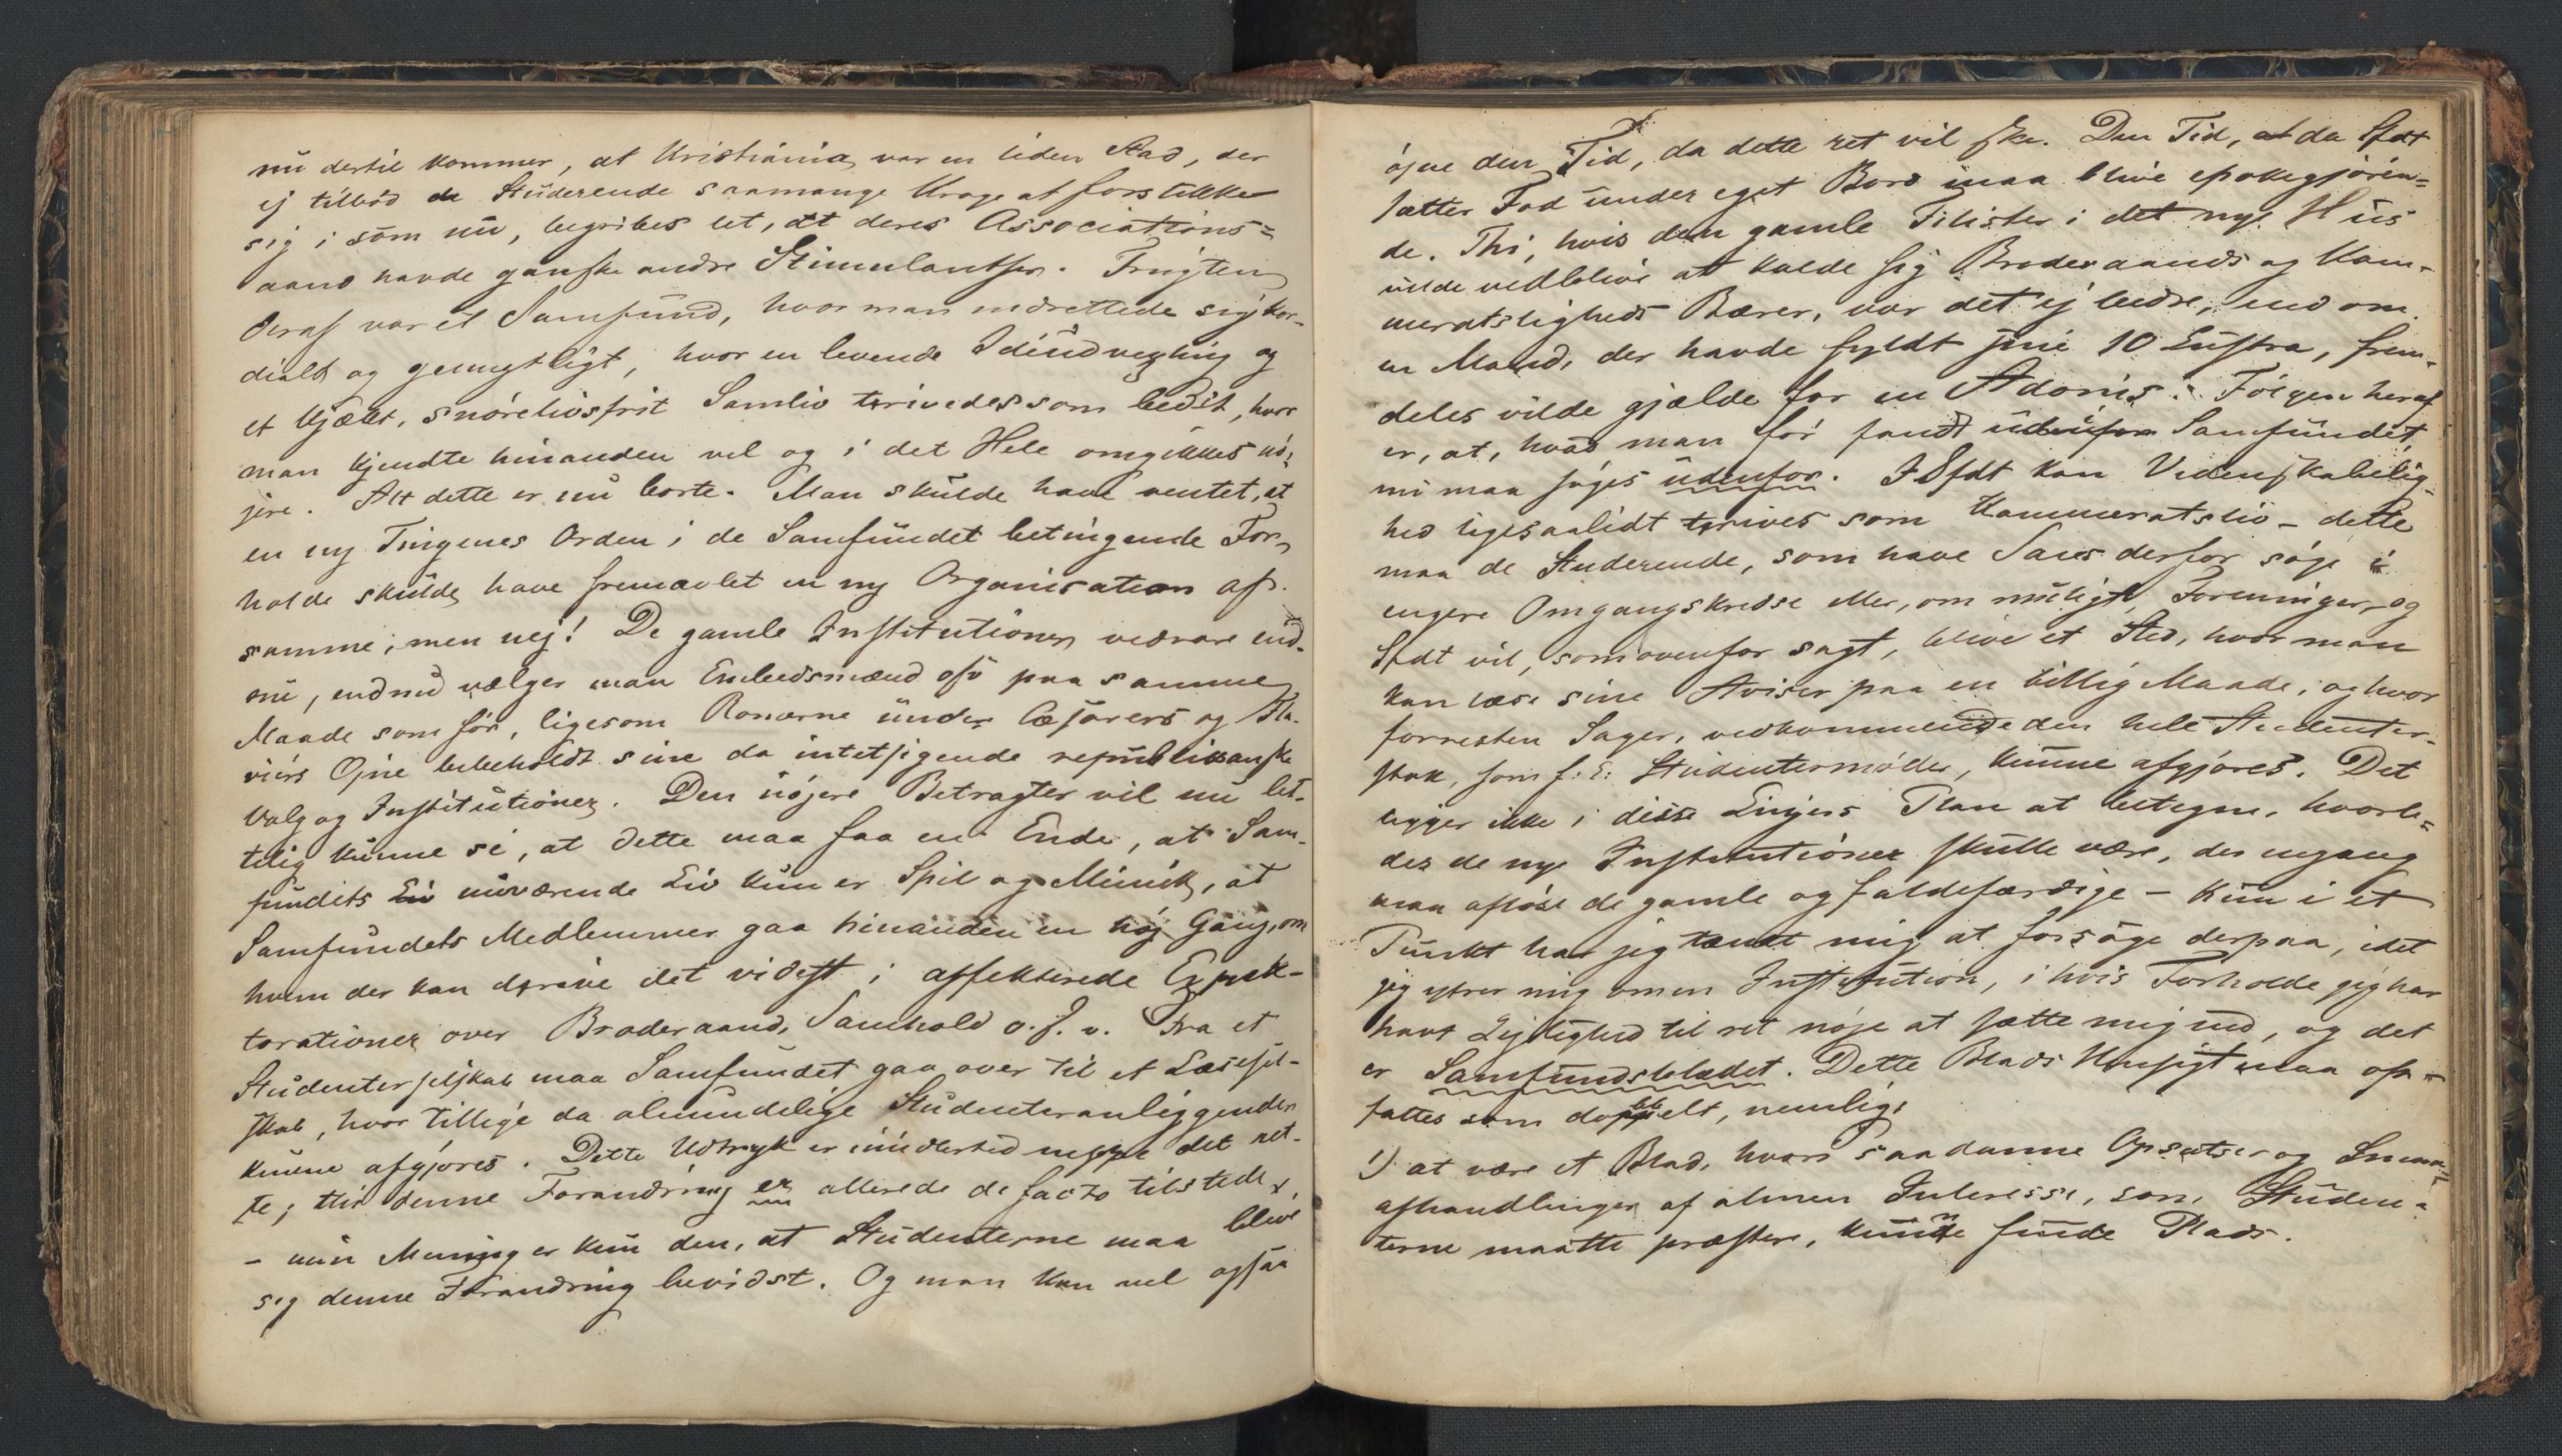 nu dertil kommer, at Kristiania var en liden Stad, der
ej tilbød de Studerende saamange Kroge at forstikke
sig i som nu, begribes let, at deres Associations=
aand havde ganske andre Stimulantser. Frugten
deraf var et Samfund, hvor man indrettede sig kor-
dialt og gemytligt, hvor en levende Ideudvexling og
et kjækt, snørelivsfrit Samliv trivedes som bedst, hvor
man kjendte hinanden vel og i det Hele omgikkes nø-
jere. Alt dette er nu borte. Man skulde have ventet, at
en ny Tingenes Orden i de Samfundet betingende For-
holde skulde have fremavlet en ny Organisation af
samme; men nej! De gamle Institutioner vedvare end-
nu, endnu vælger man Embedsmænd osv paa samme
Maade som før, ligesom Romerne under Cæsarers og Fla-
viers Øjne beholdt sine da intetsigende republikanske
Valg og Institutioner. Den nøjere Betragter vil nu let-
telig kunne se, at dette maa faa en Ende, at Sam-
fundets Liv nuværende Liv kun er Spil og Mimik, at
Samfundets Medlemmer gaa hinanden en høj Gang, om
hvem der kan drive det videst i affekterede Expek-
torationer over Broderaand, Samhold o. s. v. Fra et
Studenterselskab maa Samfundet gaa over til et Læsesel-
skab, hvor tillige da almindelige Studenteranliggender
kunne afgjøres. Dette Udtryk er imidlertid neppe det ret-
te; thi denne Forandring er allerede de facto tilstede,
– min Mening er kun den, at Studenterne maa blive
sig denne Forandring bevidst. Og man kan vel ogsaa
øjne den Tid, da dette ret vil ske. Den Tid, at da Sfdt
sætter Fod under eget Bord maa blive epokegjøren=
de. Thi, hvis den gamle Filister i det nye Hus
vilde vedblive at kalde sig Broderaands og Kam-
meratsligheds Bærer, var det ej bedre, end om
en Mand, der havde fyldt sine 10 Lustra, frem-
deles vilde gjælde for en Adonis. Følgen heraf
er, at, hvad man før fandt udenfor Samfundet,
nu maa søges udenfor. I Sfdt kan Videnskabelig-
hed ligesaalidt trives som Kammeratsliv – dette
maa de Studerende, som have Sans derfor søge i
engere Omgangskredse eller, om muligt, Foreninger, og
Sfdt vil, som ovenfor sagt, blive et Sted, hvor man
kan læse sine Aviser paa en billig Maade, og hvor
forresten Sager, vedkommende den hele Studenter-
stok, som f. E. Studentermøder, kunne afgjøres. Det
ligger ikke i disse Linjers Plan at betegne, hvorle=
des de nye Institutioner skulle være, der engang
maa afløse de gamle og faldefærdige – kun i et
Punkt har jeg tænkt mig at forsøge derpaa, idet
jeg ytrer mig om en Institution, i hvis Forholde jeg har
havt Lejlighed til ret nøje at sætte mig ind, og det
er Samfundsbladet. Dette Blads Hensigt maa op-
fattes som dobbelt, nemlig:
1) at være et Blad, hvori saadanne Opsatser og Smaa=
afhandlinger af almen Interesse, som Studen=
terne maatte præstere, kunde finde Plads.